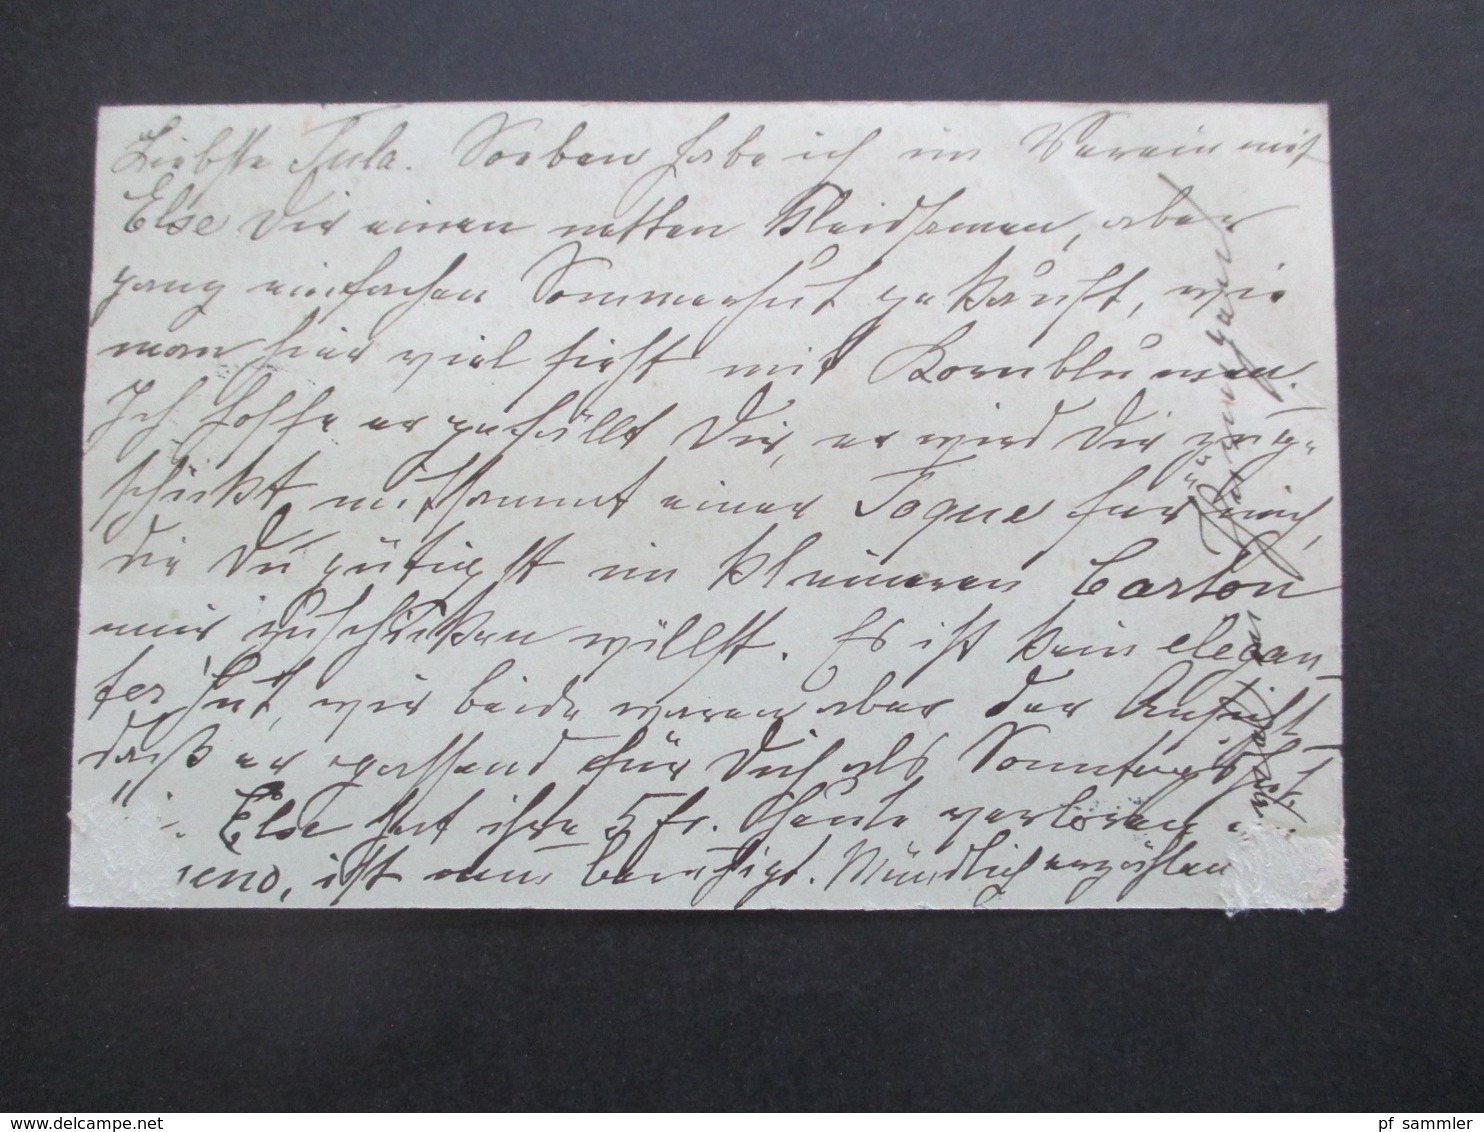 Liebste Jula. Soeben habe ich im Verein mit
Else Dir einen netten kleidsamen, aber
ganz einfachen Sommerhut gekauft, wie
man hier viel sieht mit Kornblumen.
Ich hoffe er gefällt Dir, er wird Dir zuge-
schickt mitsammt einer Toque für mich,
die Du gütigst im kleineren Carton
mir zuschicken willst. Es ist kein elegan-
ter Hut, wir beide waren aber der Ansicht
daß er passend für Dich als Sonntagshut
Else hat ihre 5 fr. heute verloren
ist nun beruhigt. Mündlich erzählen
pf_sammler